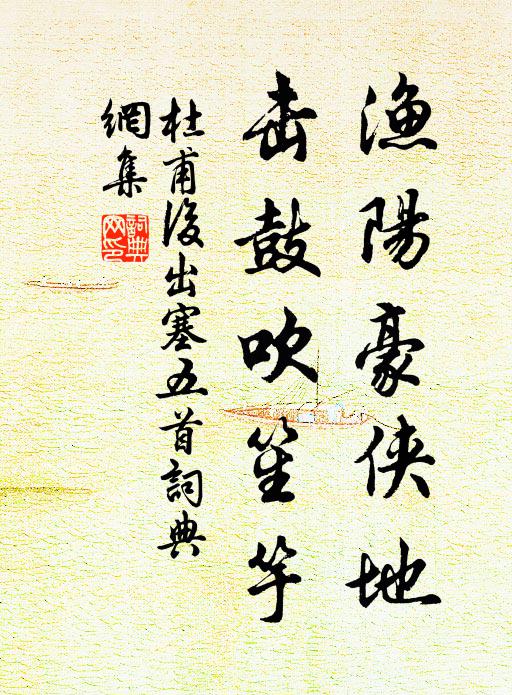 漁陽豪俠地
击鼓吹笙竽
杜甫後出塞五首詞典
網集
詞典
网印